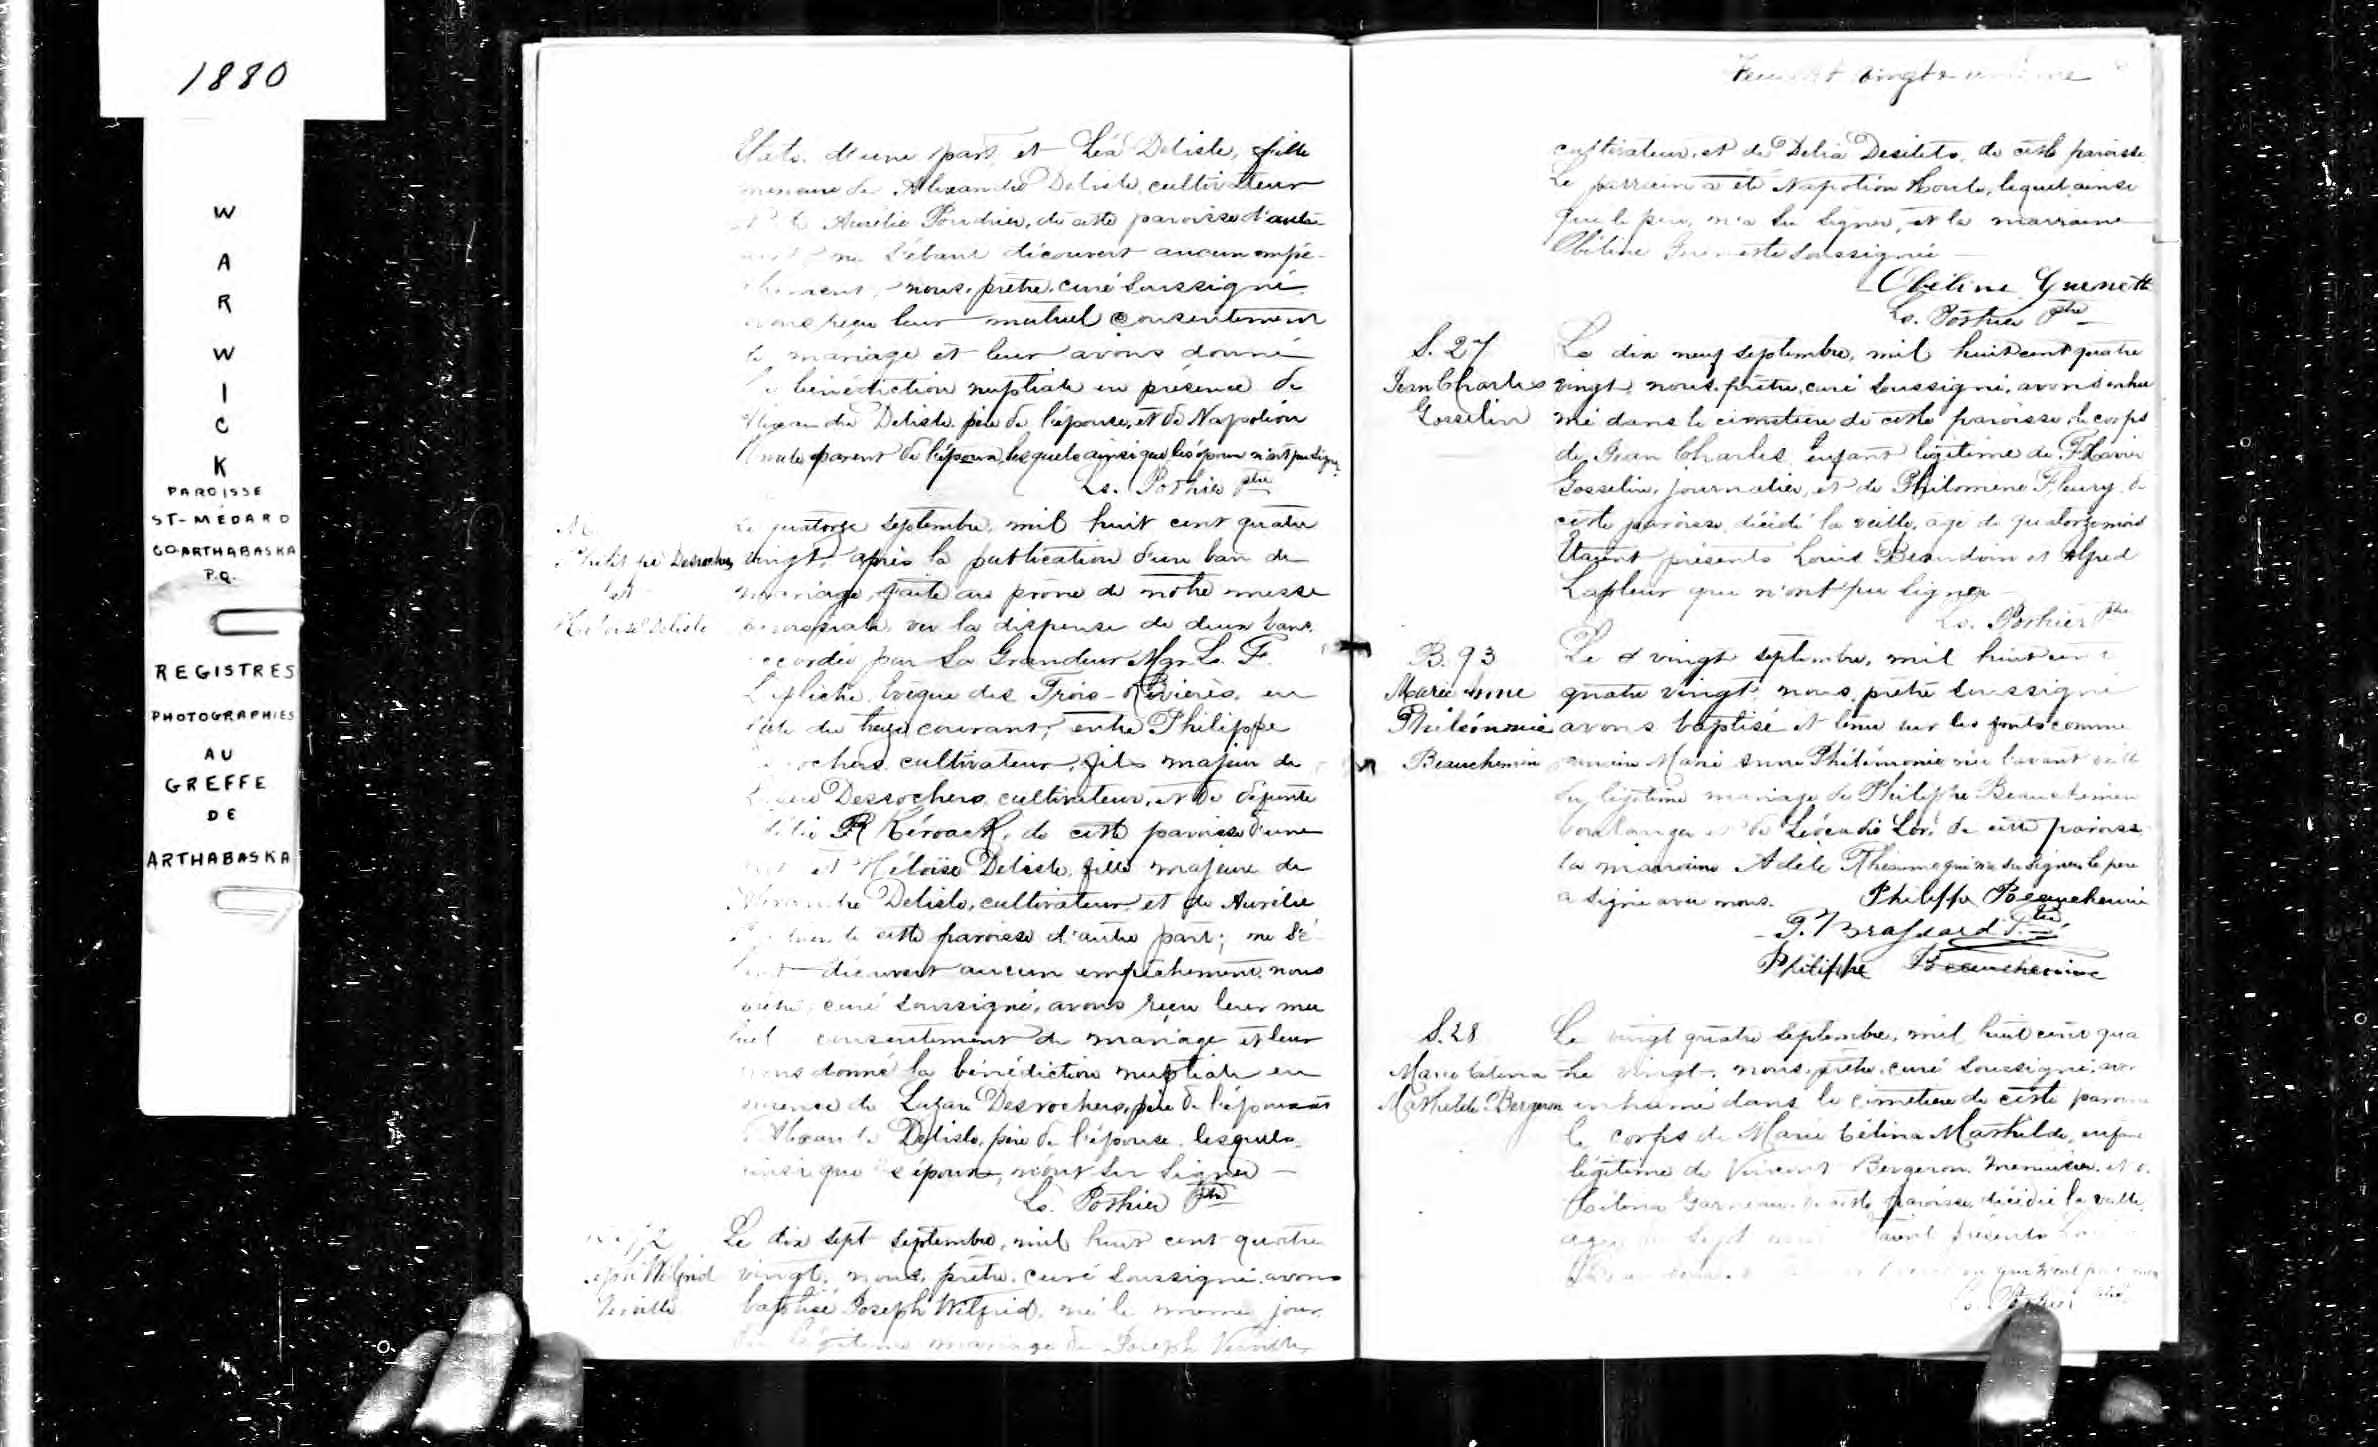 1880
W
A
R
W
I
C
K
PAROISSE
ST-MÉDARD
CO-ARTHABASKA
P.Q.
REGISTRES
PHOTOGRAPHIES
AU
GREFFE
DE
ARTHABASKA
d'une part, et Léa Delisle, fille
mineure de Alexandre Delisle, cultivateur
Aurélie Poudrier, de cette paroisse d'autre
ne s'étant découvert aucun empê-
chement, nous, prêtre, curé soussigné
avons reçu leur mutuel consentement
de mariage et leur avons donné
la bénédiction nuptiale en présence de
Alexandre Delisle père de l'épouse, et de Napoléon
parent de l'époux, lesquels ainsi que les époux n'ont pu signer
Ls. Pothier ptre
M
Philippe Desrochers
et
Héloïse Delisle
Le quatorze septembre, mil huit cent quatre
vingt, après la publication d'un ban de
mariage, faite au prône de notre messe
paroissiale, vu la dispense de deux bans
accordée par Sa Grandeur Mgr. L. F.
Laflèche, Évêque des Trois-Rivières, en
date du treize courant, entre Philippe
Desrochers cultivateur, fils majeur de
Lazare Desrochers, cultivateur, et de défunte
Kéroack, de cette paroisse d'une
part et Héloïse Delisle, fille majeure de
Alexandre Delisle, cultivateur, et de Aurélie
de cette paroisse d'autre part; ne s'é-
tant découvert aucun empêchement, nous
prêtre, curé soussigné, avons reçu leur mu
tuel consentement de mariage et leur
avons donné la bénédiction nuptiale en
présence de Lazare Desrochers, père de l'époux et
d'Alexandre Delisle, père de l'épouse, lesquels
ainsi que les époux, n'ont su signer —
Ls. Pothier ptre
92
Joseph Wilfrid
Verville
Le dix sept septembre, mil huit cent quatre
vingt, nous, prêtre, curé soussigné, avons
baptisé Joseph Wilfrid, né le même jour
du légitime mariage de Joseph Verville,
Feuillet vingt & unième
cultivateur, et de Délia Desilets, de cette paroisse.
Le parrain a été Napoléon Houle, lequel ainsi
que le père, n'a su signer, et la marraine
Obéline Guernette soussignée —
Obéline Guernette
Ls. Pothier ptre
S. 27
Jean Charles
Gosselin
Le dix neuf septembre, mil huit cent quatre
vingt, nous, prêtre, curé soussigné, avons inhu
mé dans le cimetière de cette paroisse, le corps
de Jean Charles, enfant légitime de F. Xavier
Gosselin, journalier, et de Philomène Fleury, de
cette paroisse, décédé la veille, âgé de quatorze mois
Étaient présents Louis Beaudoin et Alfred
Lafleur qui n'ont pu signer —
Ls. Pothier ptre
B. 93
Marie Anne
Philémonie
Beauchemin
Le vingt septembre, mil huit cent
quatre vingt, nous prêtre soussigné
avons baptisé et tenu sur les fonts comme
parrain Marie Anne Philémonie née l'avant veille
du légitime mariage de Philippe Beauchemin
boulanger et de Léocadie de cette paroisse
la marraine Adèle Rheaume qui n'a su signer, le père
a signé avec nous. Philippe Beauchemin
P. Brassard Ptre
Philippe Beauchemin
S. 28
Marie Célina
Mathilde Bergeron
Le vingt quatre septembre, mil huit cent qua
tre vingt, nous, prêtre, curé soussigné, avons
inhumé dans le cimetière de cette paroisse
le corps de Marie Célina Mathilde, enfant
légitime de Vincent Bergeron, menuisier, et d
Garneau, de cette paroisse, décédée la veille,
âgée de sept Étaient présents
qui n'ont pu signer
Ls. Pothier ptre